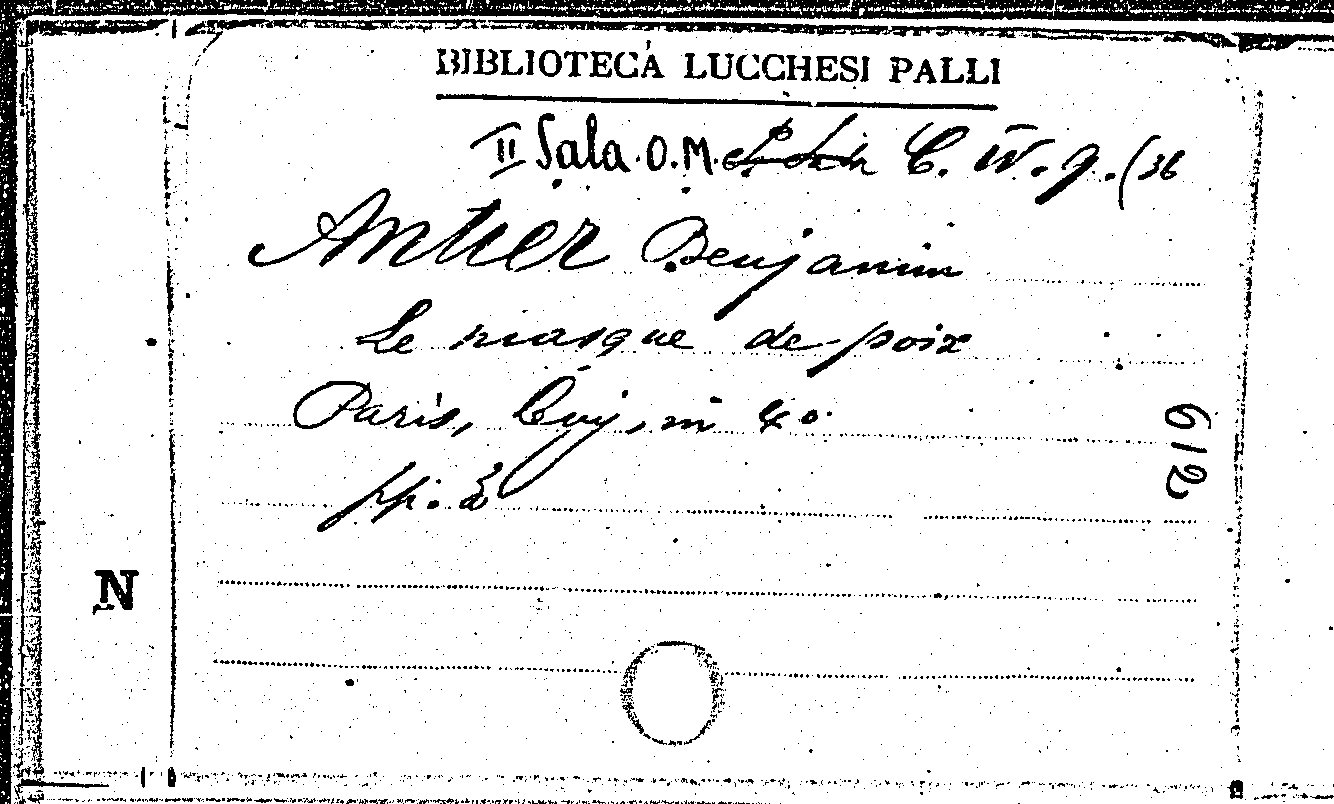 BIBLIOTECA LUCCHESI PALLI
II Sala. O.M. C. IV. 9. (36
Antier Benjamin
Le masque de poix
Paris, in 4o.
pp.
612
N